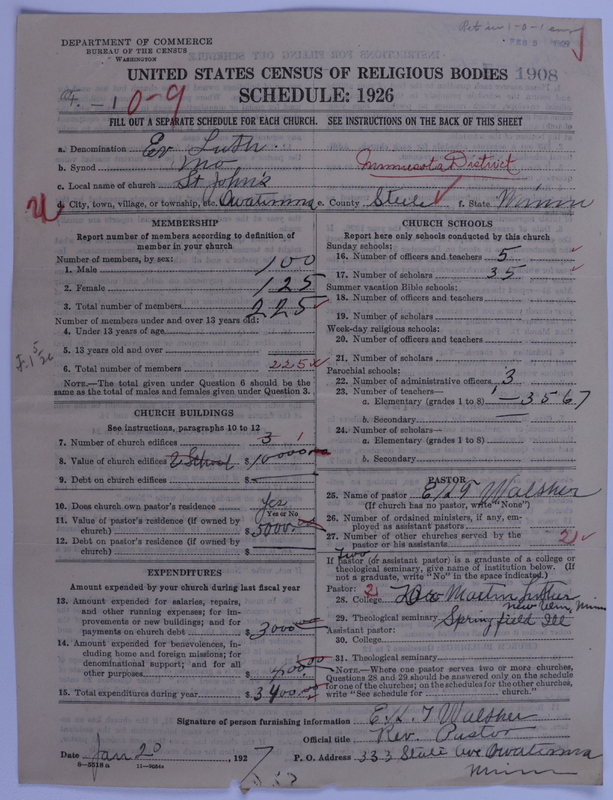 DEPARTMENT OF COMMERCE
BUREAU OF THE CENSUS
WASHINGTON
FEB 5 1929
UNITED STATES CENSUS OF RELIGIOUS BODIES 1908
SCHEDULE: 1926
0-9
FILL OUT A SEPARATE SCHEDULE FOR EACH CHURCH. SEE INSTRUCTIONS ON THE BACK OF THIS SHEET
a. Denomination Ev Luth.
b. Synod Mo Minnesota District
c. Local name of church St John's
d. City, town, village, or township, etc. Owatonna e. County Steele f. State Minn
MEMBERSHIP
Report number of members according to definition of
member in your church
Number of members, by sex:
1. Male 100
2. Female 125
3. Total number of members 225
Number of members under and over 13 years old:
4. Under 13 years of age
5. 13 years old and over
6. Total number of members 225
NOTE.—The total given under Question 6 should be
same as the total of males and females given under Question 3.
CHURCH BUILDINGS
See instructions, paragraphs 10 to 12
7. Number of church edifices 3 1
8. Value of church edifices & School $10000
9. Debt on church edifices $
10. Does church own pastor's residence? Yes
Yes or No
11. Value of pastor's residence (if owned by
church) $5000
12. Debt on pastor's residence (if owned by
church) $
EXPENDITURES
Amount expended by your church during last fiscal year
13. Amount expended for salaries, repairs,
and other running expense; for im-
provements or new buildings; and for
payments on church debt $3000
14. Amount expended for benevolences, in-
cluding home and foreign missions; for
denominational support; and for all
other purposes $400.00
15. Total expenditures during year $3400.00
CHURCH SCHOOLS
Report here only schools conducted by this church
Sunday schools:
16. Number of officers and teachers 5
17. Number of scholars 35
Summer vacation Bible schools:
18. Number of officers and teachers
19. Number of scholars
Week-day religious schools:
20. Number of officers and teachers
21. Number of scholars
Parochial schools:
22. Number of administrative officers 3
23. Number of teachers—
a. Elementary (grades 1 to 8) 1—3567
b. Secondary
24. Number of scholars—
a. Elementary (grades 1 to 8)
b. Secondary
PASTOR
25. Name of pastor E H T Walther
(If church has no pastor, write "None")
26. Number of ordained ministers, if any, em-
ployed as assistant pastors
27. Number of other churches served by the
pastor or his assistants 2
two
If pastor (or assistant pastor) is a graduate of a college or
theological seminary, give name of institution below. (If
not a graduate, write "No" in the space indicated.)
Pastor: 2
28. College Martin Luther
New Ulm, Minn
29. Theological seminary Springfield Ill
Assistant pastor:
30. College
31. Theological seminary
NOTE.—Where one pastor serves two or more churches,
Questions 28 and 29 should be answered only on the schedule
for one of the churches; on the schedules for the other churches,
write "See schedule for church."
Signature of person furnishing information E. H. T Walther
Official title Rev. Pastor
Date Jan 20, 1927 P. O. Address 333 State Ave Owatonna
Minn
8-5518a 11-9684a